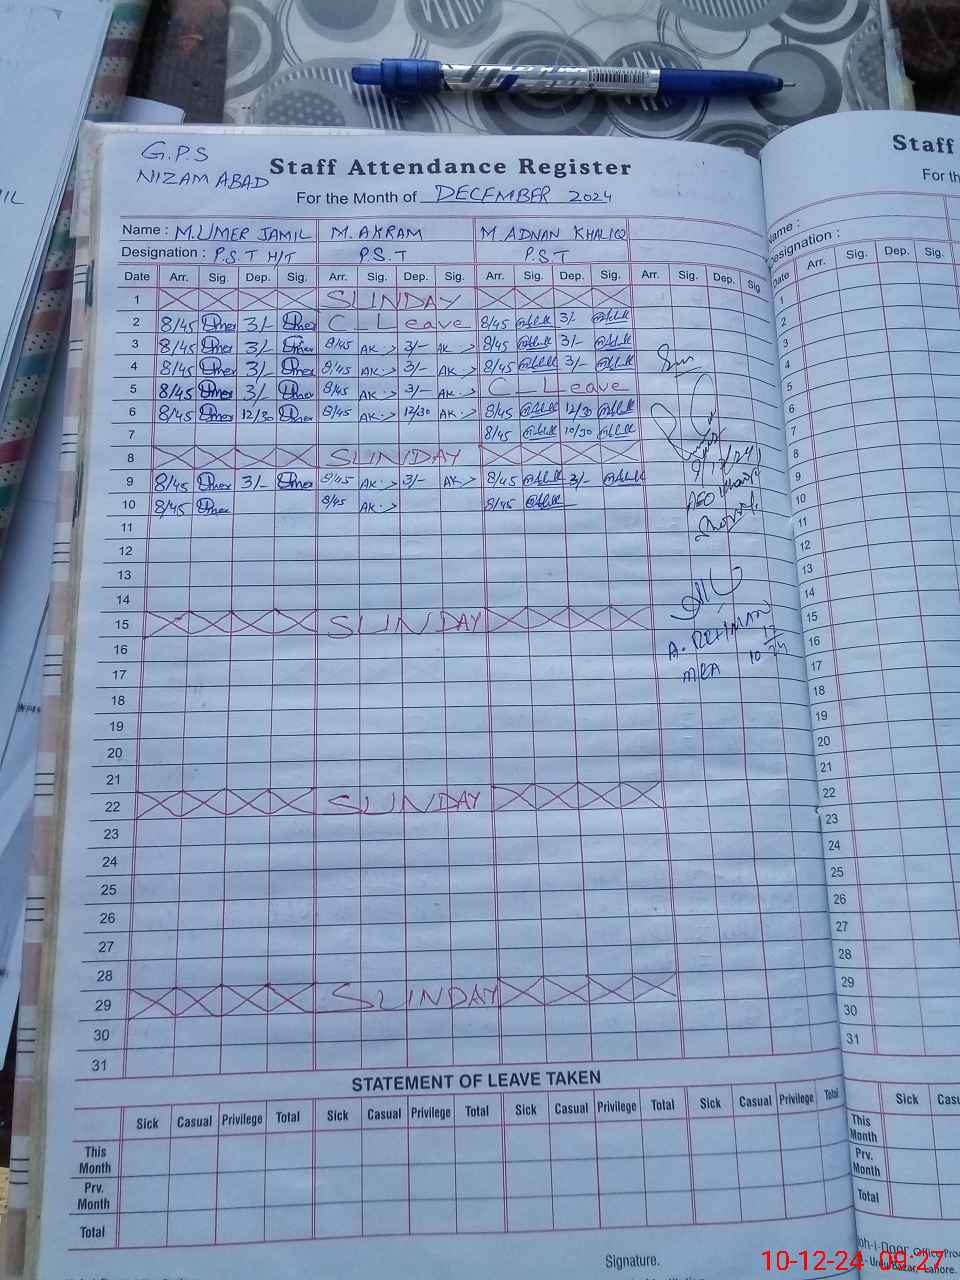 G.P.S
NIZAM ABAD
Staff Attendance Register
For the Month of DECEMBER 2024
Name : M.UMER JAMIL M. AKRAM M. ADNAN KHALIQ
Designation : P.S T H/T P.S.T P.S T
Date Arr. Sig. Dep. Sig. Arr. Sig. Dep. Sig. Arr. Sig. Dep. Sig. Arr. Sig. Dep. Sig
1 SUNDAY
2 8/45 Umer 3/- Umer C_Leave 8/45 3/-
3 8/45 Umer 3/- Umer 8/45 AK. 3/- AK 8/45 3/-
4 8/45 Umer 3/- Umer 8/45 AK. 3/- AK. 8/45 3/-
5 8/45 Umer 3/- Umer 8/45 AK. 3/- AK. C_Leave
6 8/45 Umer 12/30 Umer 8/45 AK. 12/30 AK. 8/45 12/30
7 8/45 10/30
8 SUNDAY
9 8/45 Umer 3/- Umer 8/45 AK. 3/- AK 8/45 3/-
10 8/45 Umer 8/45 AK. 8/45
11
12
13
14
15 SUNDAY
16
17
18
19
20
21
22 SUNDAY
23
24
25
26
27
28
29 SUNDAY
30
31
9/12/24
AEO
A. REHMAN
MEA 10 12 24
STATEMENT OF LEAVE TAKEN
Sick Casual Privilege Total Sick Casual Privilege Total Sick Casual Privilege Total Sick Casual Privilege Total
This Month
Prv. Month
Total
Signature.
Staff
For th
Name :
Designation :
Date Arr. Sig. Dep. Sig.
1
2
3
4
5
6
7
8
9
10
11
12
13
14
15
16
17
18
19
20
21
22
23
24
25
26
27
28
29
30
31
Sick Casu
This Month
Prv. Month
Total
Urdu Bazar, Lahore.
10-12-24 09:27